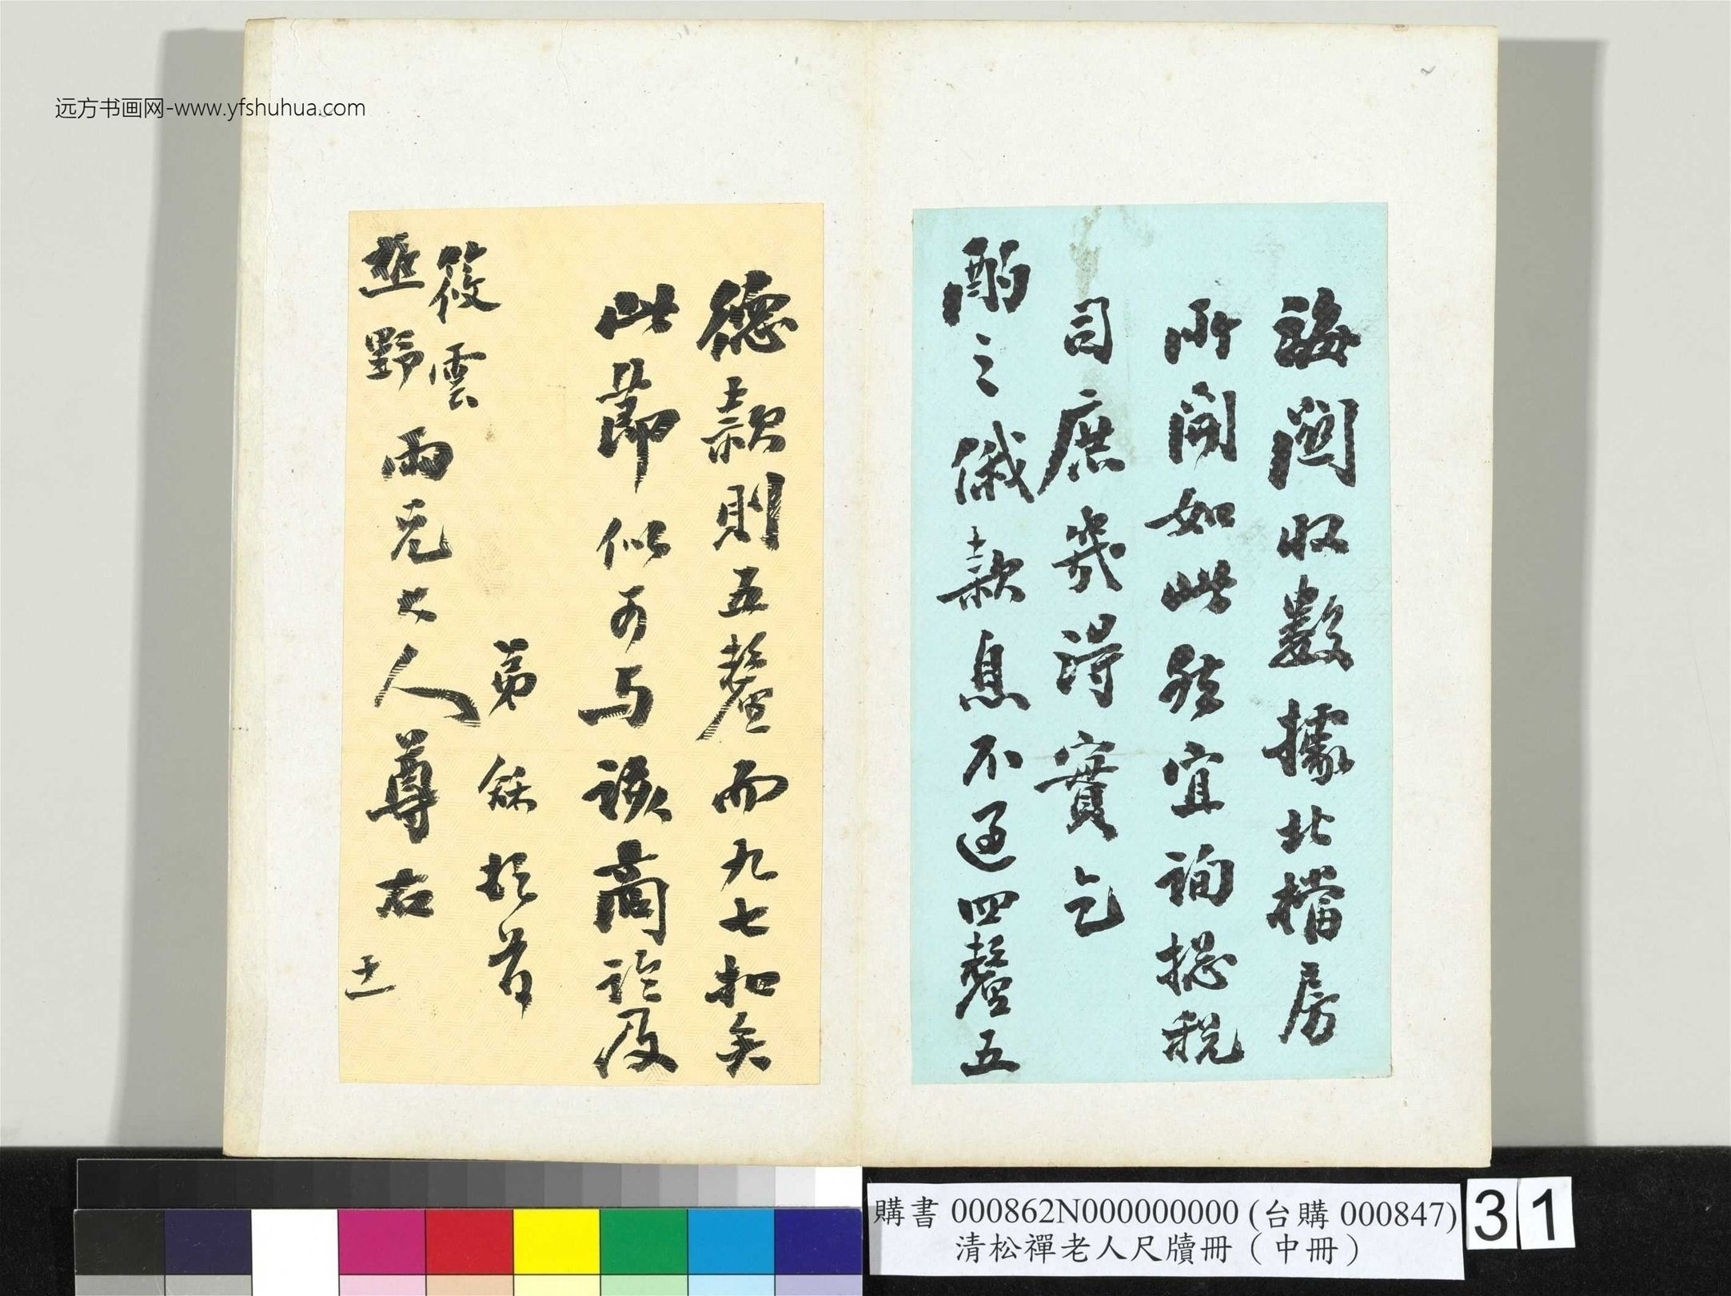 远方书画网-www.yfshuhua.com
海関收數據北檔房
所開如此
然宜詢總税
司庶幾得實乞
酌之俄款息不過四釐五
德款則五釐而九七扣矣
此節似可与該商論及
弟龢頓首
筱雲
樵野兩兄大人尊右
購書 000862N000000000 (台購 000847)
清松禪老人尺牘冊（中冊）
31